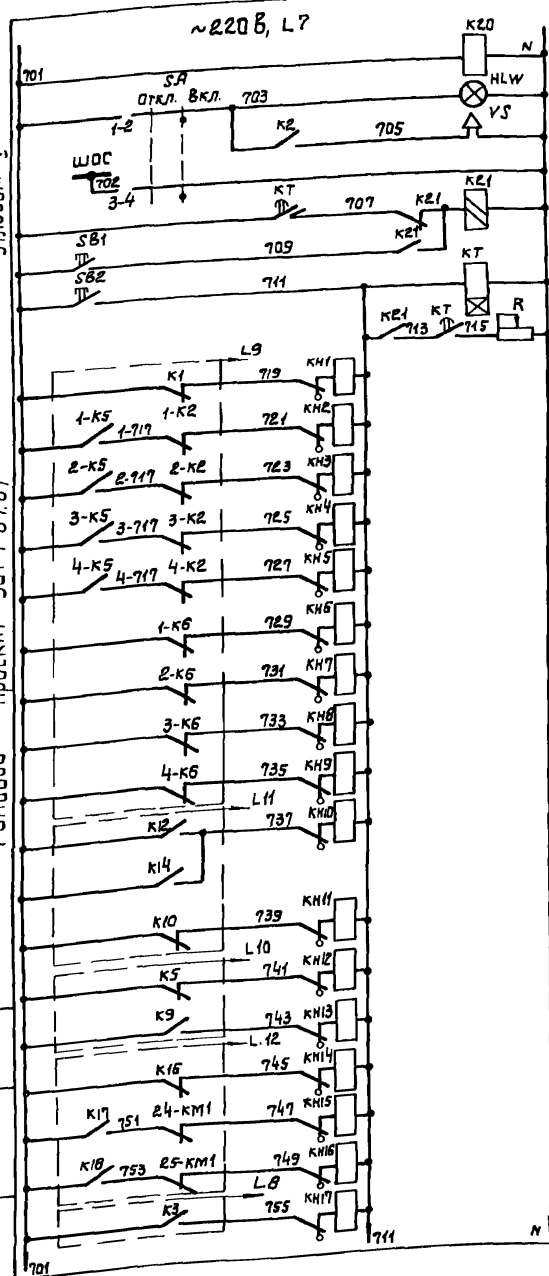 ~220В, L7
K20
701
N
SA
HLW
ОТКЛ. ВКЛ.
703
1-2
VS
K2
705
ШОС
702
3-4
KT
707
K21
K21
SB1
709
K21
KT
SB2
711
K21
713
KT
715
R
L9
K1
719
KH1
1-K5
1-717
1-K2
721
KH2
2-K5
2-717
2-K2
723
KH3
3-K5
3-717
3-K2
725
KH4
4-K5
4-717
4-K2
727
KH5
1-K6
729
KH6
2-K6
731
KH7
3-K6
733
KH8
4-K6
735
KH9
L11
K12
737
KH10
K14
K10
739
KH11
L10
K5
741
KH12
K9
743
KH13
L.12
K16
745
KH14
K17
751
24-KM1
747
KH15
K18
753
25-KM1
749
KH16
L.8
K3
755
KH17
701
711
N